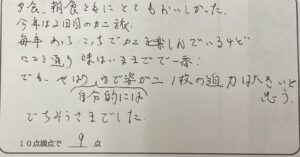 夕食、朝食ともにとてもおいしかった。
今年は2回目のカニ旅。
毎年 あちこちでカニを楽しんでいるけど
口コミ通り 味はいままでで一番。
でも、やはり ゆで姿ガニ 1枚の迫力は大きいと
自分的には
思う。
ごちそうさまでした。
10点満点で 9 点